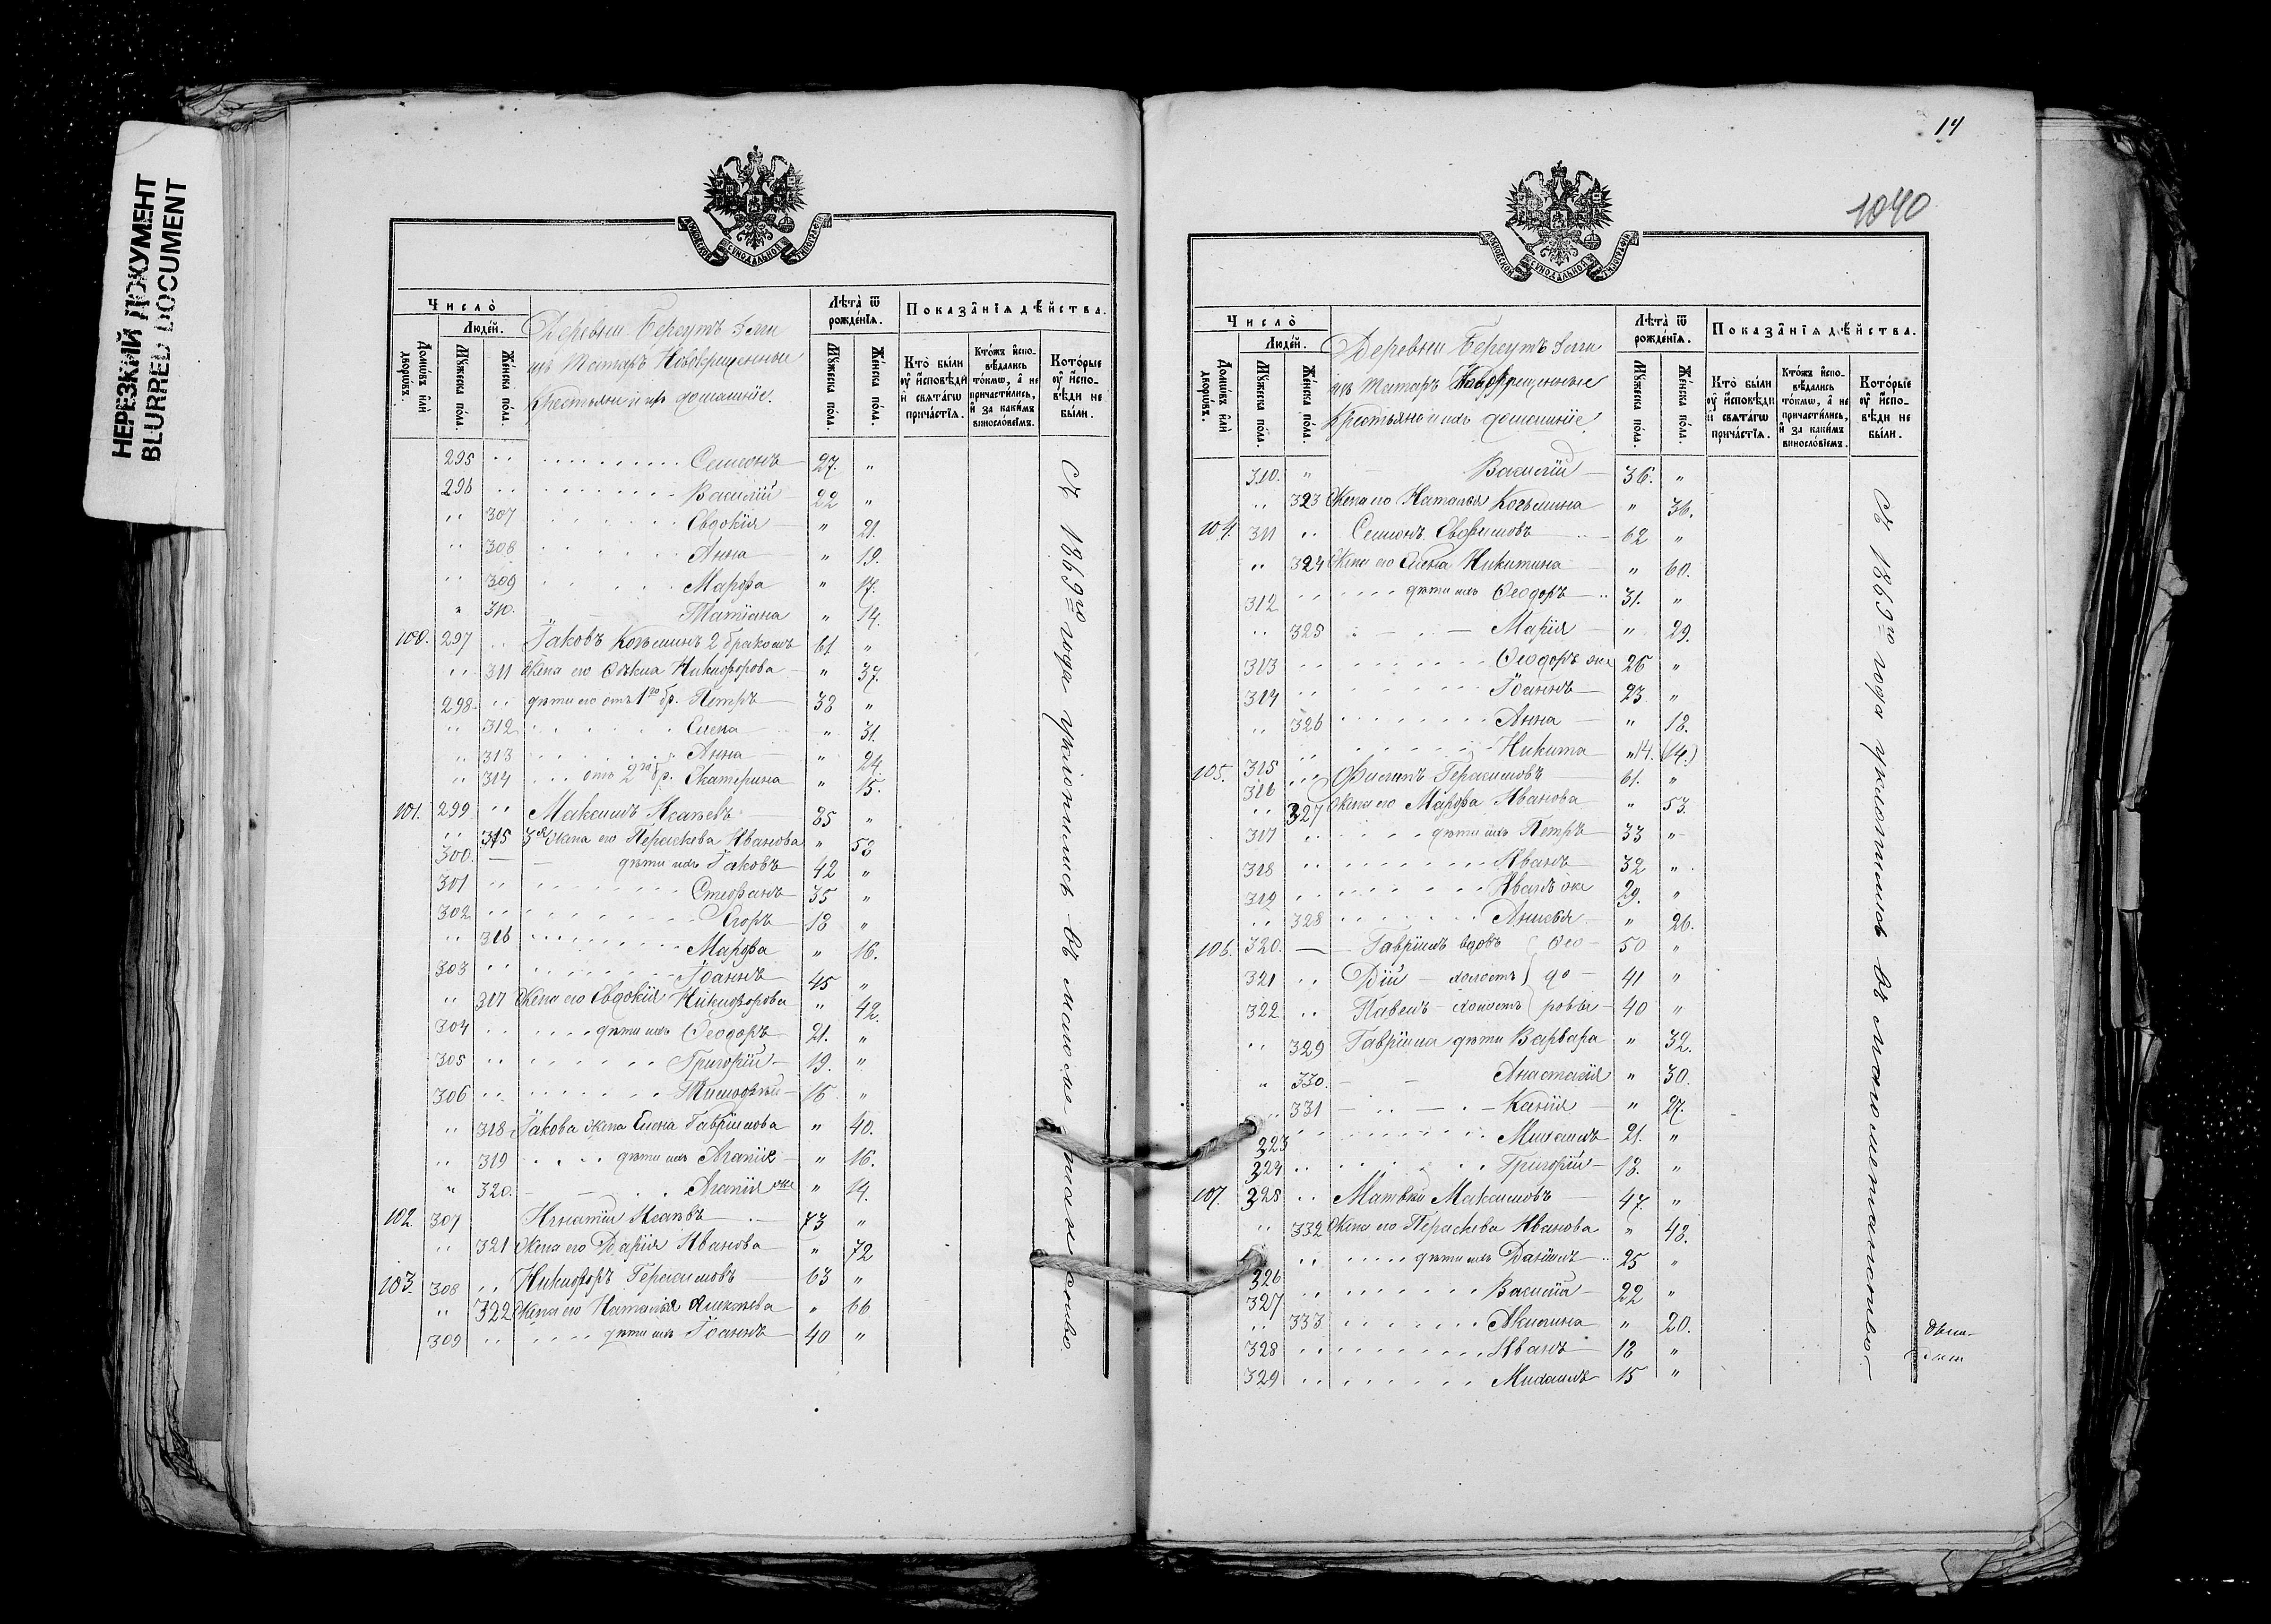 НЕРЕЗКИЙ ДОКУМЕНТ
BLURRED DOCUMENT
МОСКОВСКОЙ СѴНОДАЛЬНОЙ ТИПОГРАФІИ
Число̀
Люде́й.
Домѡ́въ и҆лѝ дворѡ́въ.
Мꙋ́жеска по́ла.
Же́нска по́ла.
Деревни Берсутъ
изъ татаръ Новокрещенные
Крестьяне и ихъ домашніе.
Лѣта̀ ѿ рожде́нїѧ.
Мꙋ́жеска по́ла.
Же́нска по́ла.
Показа̑нїѧ дѣ́йства.
Кто̀ бы́ли оу҆ и҆сповѣ́ди и҆ свѧта́гѡ прича́стїѧ.
Кто́жъ и҆спо-вѣ́дались то́кмѡ, а҆ не причасти́лись, и҆ за каки́мъ винослові́емъ.
Кото́рые оу҆ и҆спо-вѣ́ди не бы́ли.
295 Семенъ 27. "
296 Василій 22 "
307 Евдокія " 21.
308 Анна " 19.
309 Марфа " 17.
310. Татіана " 14.
100. 297 Іаковъ Козьминъ 2 бракомъ 61 "
311 Жена его Никифорова " 37.
298 дѣти его отъ 1го бр. Петръ 38 "
312 Елена " 31.
313 Анна " 24.
314 отъ 2го бр. Екатерина " 15.
101. 299 Максимъ Исаевъ 85 "
315 3я Жена его Параскева Иванова " 53
300. дѣти ихъ Іаковъ 42 "
301 Стефанъ 35 "
302 Егоръ 18 "
316 Марфа " 16.
303 Іоаннъ 45 "
317 Жена его Евдокія Никифорова " 42.
304 дѣти ихъ Ѳеодоръ 21. "
305 Григорій 19. "
306 Тимоѳей 16 "
318 Іакова жена Елена Гавріилова " 40.
319 дѣти ихъ Агапія " 16.
320. Агапія же " 14.
102. 307 Игнатій Исаевъ 73 "
321 Жена его Дарія Иванова " 72
103. 308 Никифоръ Герасимовъ 63 "
322 Жена его Наталья Алексѣева " 66
309 дѣти ихъ Іоаннъ 40 "
Съ 1869го года уклонились въ магометанство.
14
1040
МОСКОВСКОЙ СѴНОДАЛЬНОЙ ТИПОГРАФІИ
Число̀
Люде́й.
Домѡ́въ и҆лѝ дворѡ́въ.
Мꙋ́жеска по́ла.
Же́нска по́ла.
Деревни Берсутъ
изъ татаръ Новокрещенные
Крестьяне и ихъ домашніе.
Лѣта̀ ѿ рожде́нїѧ.
Мꙋ́жеска по́ла.
Же́нска по́ла.
Показа̑нїѧ дѣ́йства.
Кто̀ бы́ли оу҆ и҆сповѣ́ди и҆ свѧта́гѡ прича́стїѧ.
Кто́жъ и҆спо-вѣ́дались то́кмѡ, а҆ не причасти́лись, и҆ за каки́мъ винослові́емъ.
Кото́рые оу҆ и҆спо-вѣ́ди не бы́ли.
310. " Василій 36. "
323 Жена его Наталья Козьмина " 36.
104. 311 Семенъ Евфимовъ 62 "
324 Жена его Никитина " 60.
312 дѣти ихъ Ѳеодоръ 31. "
325 Марія " 29.
313 Ѳеодоръ же 26 "
314 Іоаннъ 23 "
326 Анна " 18.
315 Никита " 14. (14.)
105. 316 Филипъ Герасимовъ 61. "
327 Жена его Марфа Иванова " 53.
317 дѣти ихъ Петръ 33 "
318 Иванъ 32 "
319 Иванъ же 29. "
328 Анисья " 26.
106. 320. Гавріилъ вдовъ Ѳео- 50 "
321 Дій холостъ до- 41 "
322 Павелъ холостъ ровы 40 "
329 Гавріила дѣти Варвара " 32.
330. Анастасія " 30.
331 Ксенія " 27.
323 Михаилъ 21. "
324 Григорій 18. "
107. 325 Матвѣй Максимовъ 47. "
332 Жена его Параскева Иванова " 48.
326 дѣти ихъ Даніилъ 25 "
327 Василій 22 "
333 Акилина " 20.
328 Иванъ 18 "
329 Михаилъ 15 "
Съ 1869го года уклонились въ магометанство.